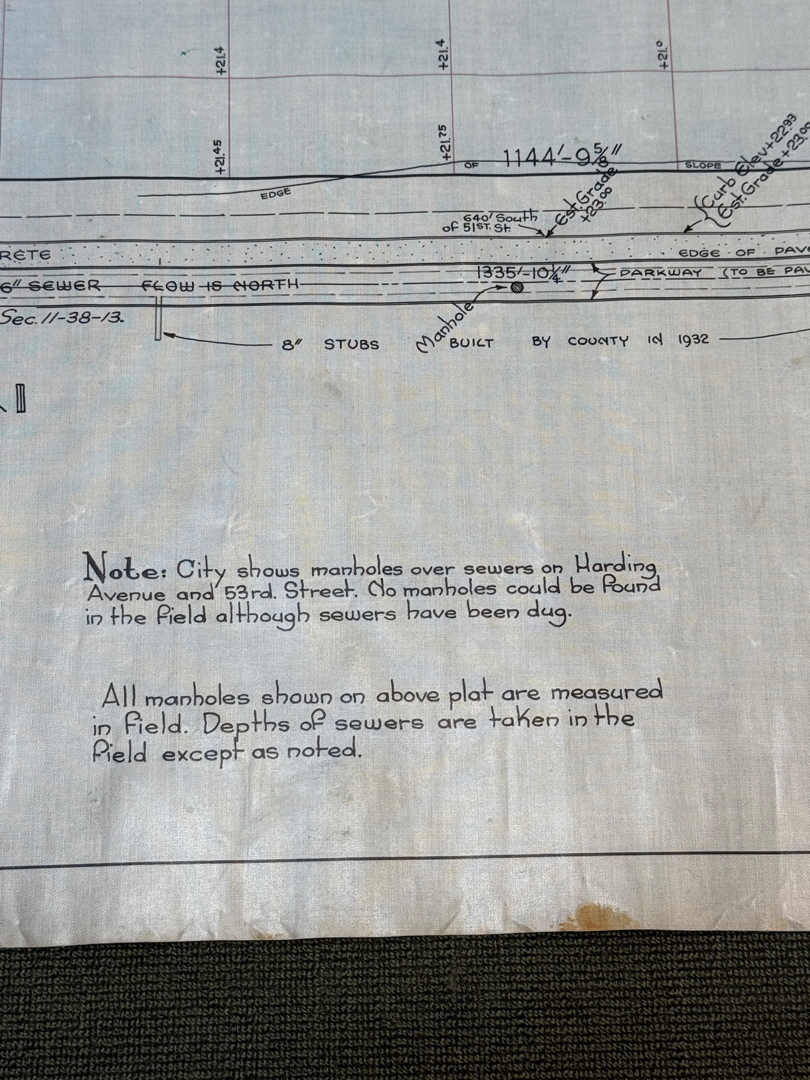 +21.4
+21.4
+21.0
+21.45
+21.75
EDGE OF 1144'-9 5/8" SLOPE
Est. Grade
+23.00
Curb Elev +22.93
Est. Grade +23.00
640' South
of 51ST. St.
RETE
EDGE OF PAV
6" SEWER FLOW IS NORTH
1335'-10 1/4"
PARKWAY (TO BE PAV
Sec. 11-38-13.
Manhole
8" STUBS BUILT BY COUNTY IN 1932
Note: City shows manholes over sewers on Harding
Avenue and 53rd. Street. No manholes could be found
in the field although sewers have been dug.
All manholes shown on above plat are measured
in field. Depths of sewers are taken in the
field except as noted.